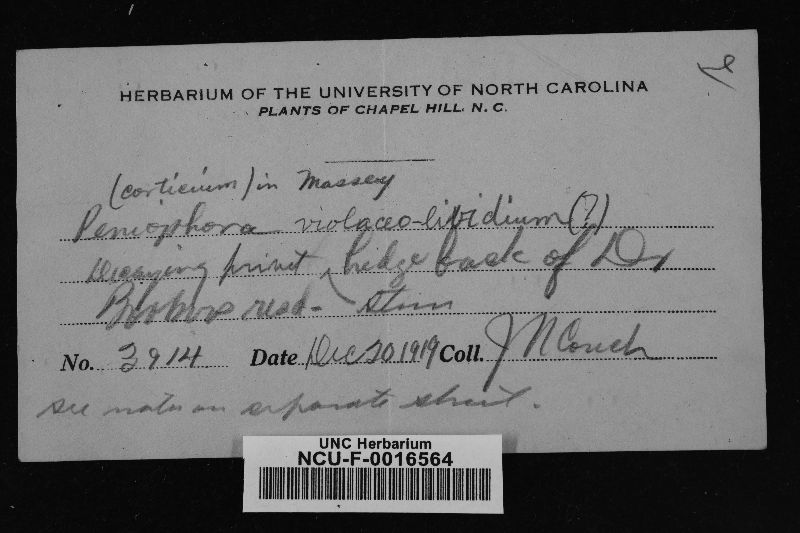 HERBARIUM OF THE UNIVERSITY OF NORTH CAROLINA
PLANTS OF CHAPEL HILL, N. C.
(corticium) in Massey
Peniophora violaceo-lividium (?)
Decaying privet hedge back of Dr
resd- stem
No. 3914 Date Dec 20 1919 Coll. J N Couch
see notes on separate sheet.
UNC Herbarium
NCU-F-0016564